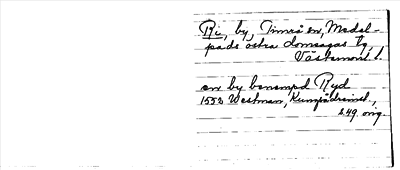 Ri, by, Timrå sn, Medel-
pads östra domsagas tg,
Västernorrl. l.
en by benempd Ryd
1553 Westman, Kungsådreinst.,
s. 49. orig.